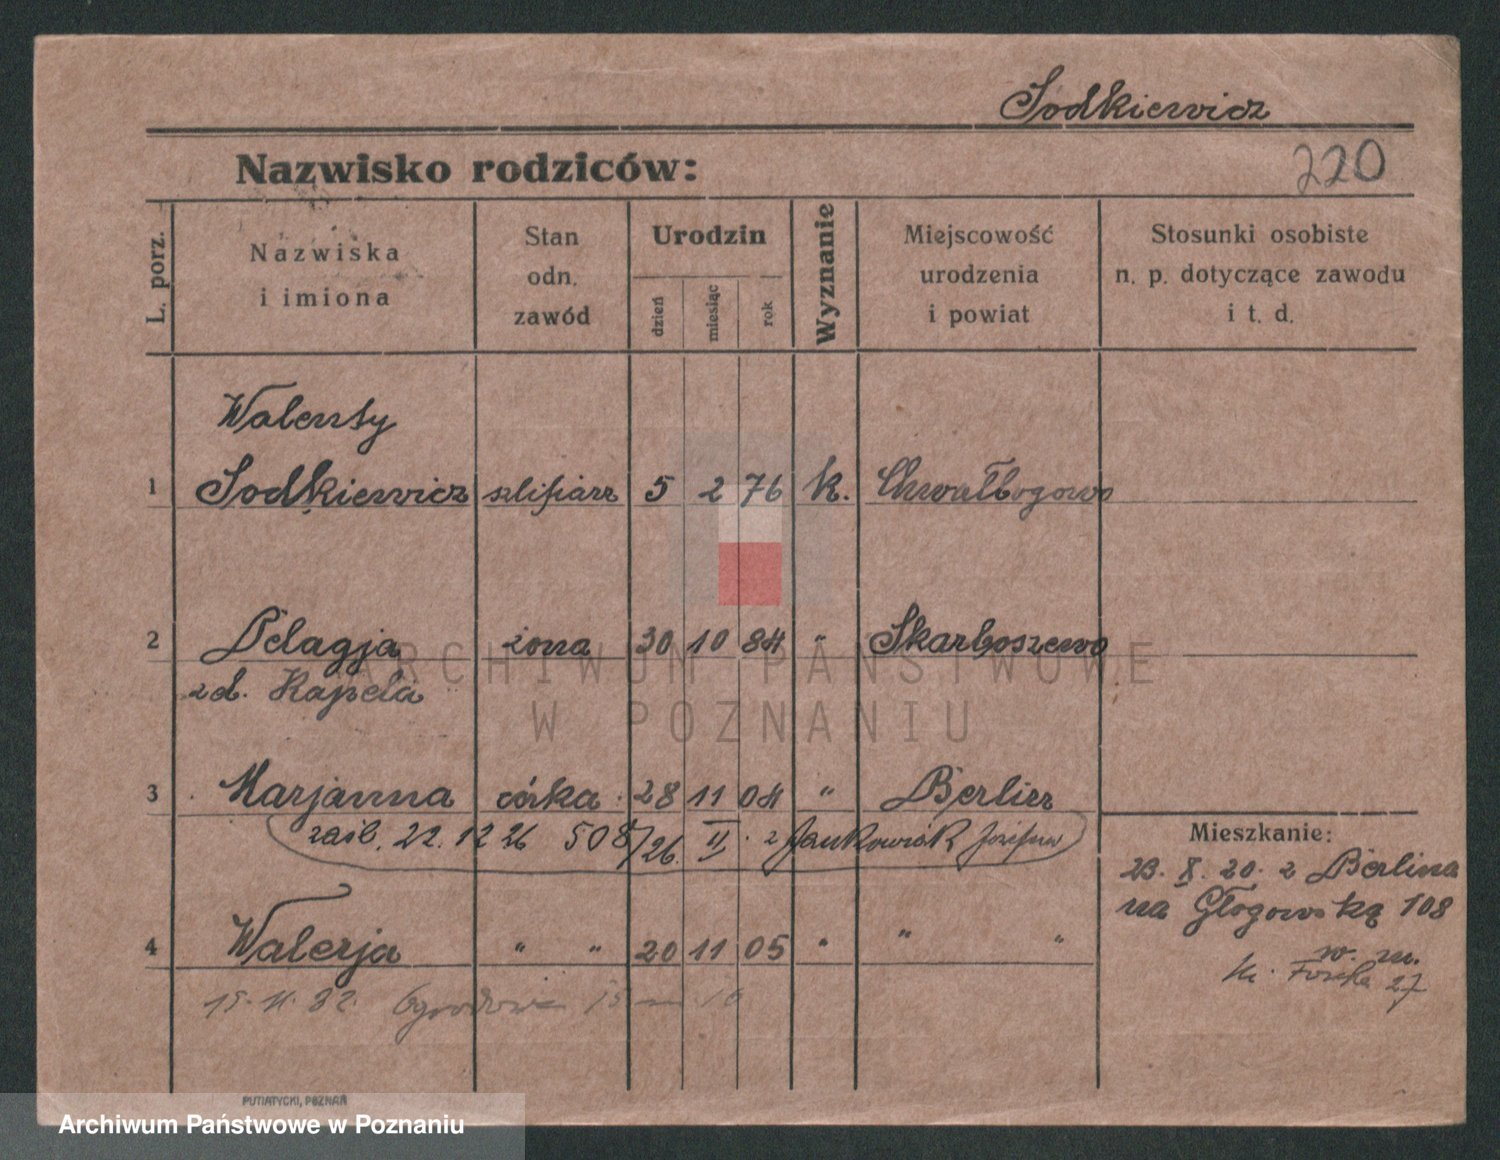 Sodkiewicz
220
Nazwisko rodziców:
L. porz.
Nazwiska
i imiona
Stan
odn.
zawód
Urodzin
dzień
miesiąc
rok
Wyznanie
Miejscowość
urodzenia
i powiat
Stosunki osobiste
n. p. dotyczące zawodu
i t. d.
Walenty
1 Sodkiewicz szlifiarz 5 2 76 k. Chwałbogowo
2 Pelagja żona 30 10 84 " Skarboszewo
zd. Kapela
3 Marjanna córka 28 11 04 " Berlin
zaśl. 22. 12 26 508/26 II. z Jankowiak Józefem
4 Walerja " " 20 11 05 " " "
15. 11. 32. Ogrodowa 15 m 16
Mieszkanie:
23. X. 20. z Berlina
na Głogowską 108
w. m.
27
PUTIATYCKI, POZNAŃ
ARCHIWUM PAŃSTWOWE
W POZNANIU
Archiwum Państwowe w Poznaniu